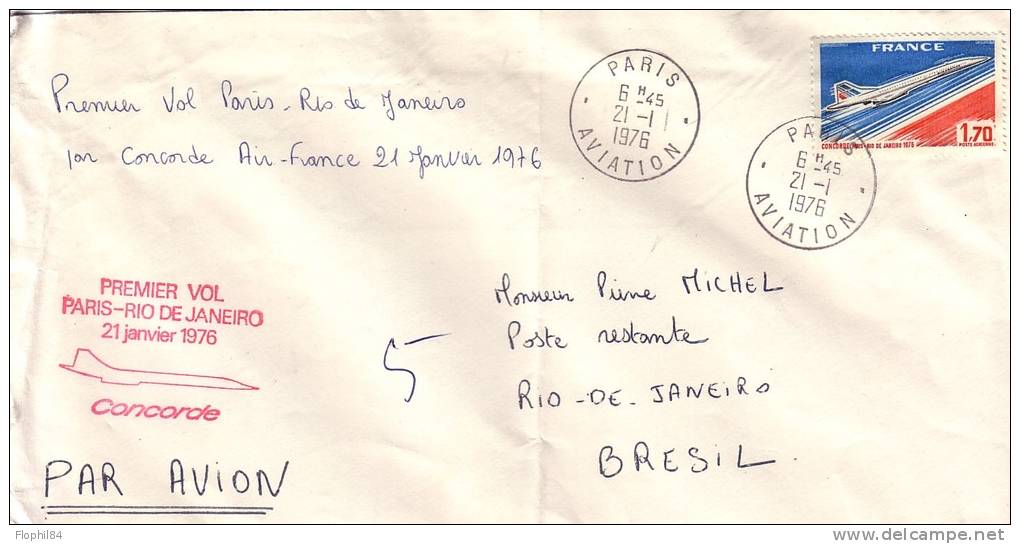 Premier Vol Paris-Rio de Janeiro
par Concorde Air-France 21 Janvier 1976
PARIS
6 H -45
21 -1
1976
AVIATION
FRANCE
1,70
CONCORDE PARIS-RIO DE JANEIRO 1976
POSTE AERIENNE
PARIS
6 H -45
21 -1
1976
AVIATION
PREMIER VOL
PARIS-RIO DE JANEIRO
21 janvier 1976
Concorde
5
Monsieur Pierre MICHEL
Poste restante
RIO-DE-JANEIRO
BRESIL.
PAR AVION
Flophil84
www.delcampe.net